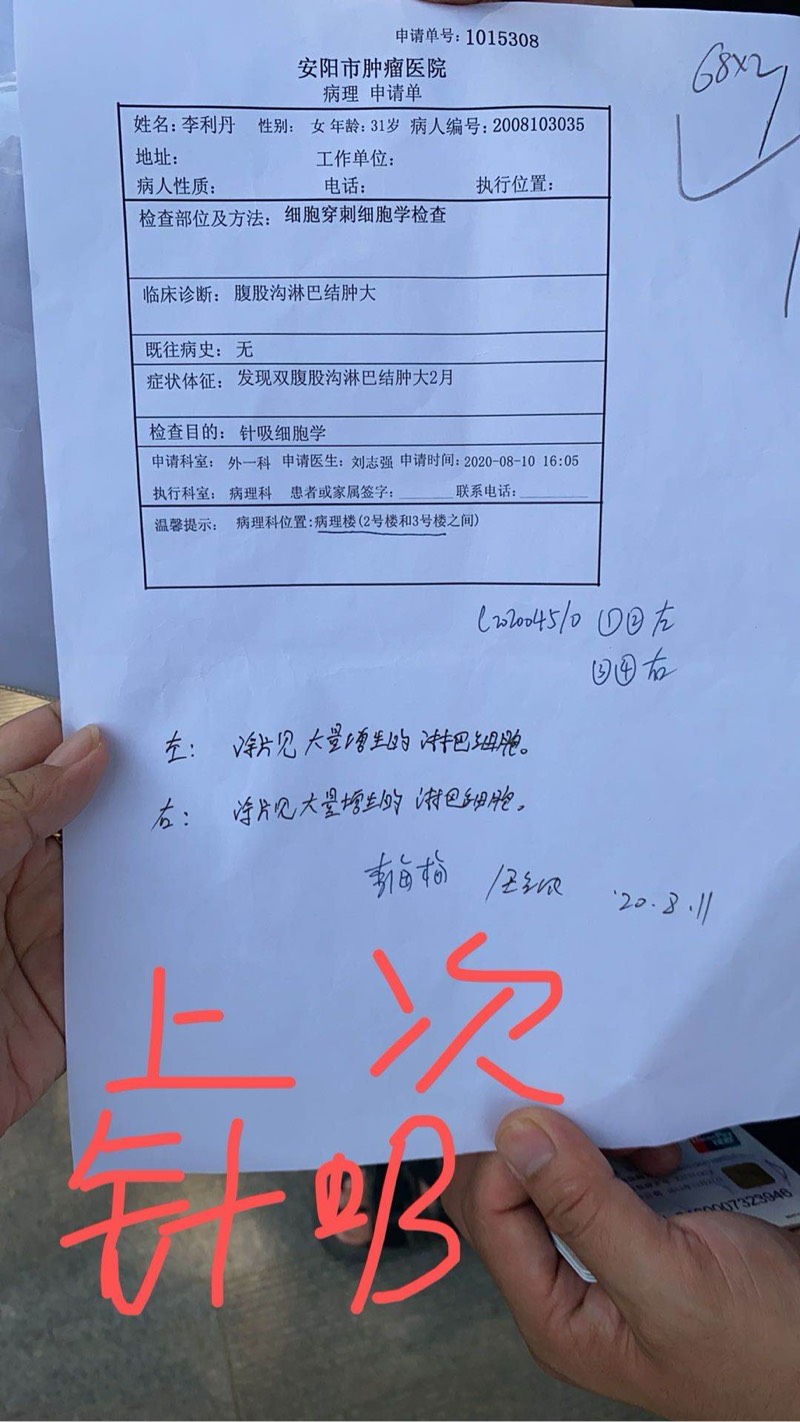 申请单号：1015308
68×2
安阳市肿瘤医院
病理 申请单
姓名：李利丹 性别： 女 年龄：31岁 病人编号：2008103035
地址： 工作单位：
病人性质： 电话： 执行位置：
检查部位及方法： 细胞穿刺细胞学检查
临床诊断： 腹股沟淋巴结肿大
既往病史： 无
症状体征： 发现双腹股沟淋巴结肿大2月
检查目的： 针吸细胞学
申请科室： 外一科 申请医生： 刘志强 申请时间：2020-08-10 16:05
执行科室： 病理科 患者或家属签字：______ 联系电话：______
温馨提示： 病理科位置:病理楼(2号楼和3号楼之间)
C202004510 ①②左
③④右
左： 涂片见大量增生的淋巴细胞。
右： 涂片见大量增生的淋巴细胞。
'20.8.11
上次
针吸